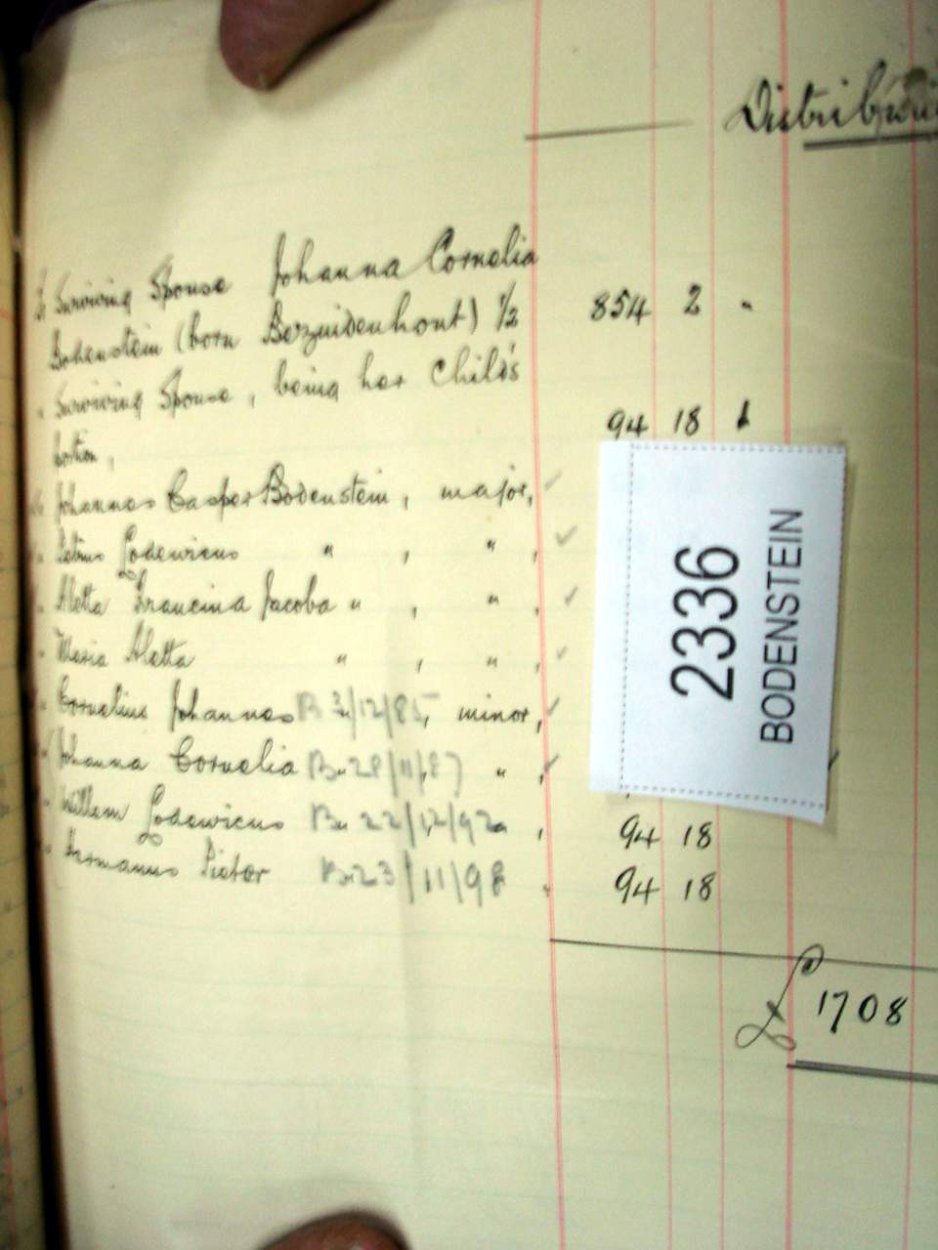 Distribution
To Surviving Spouse Johanna Cornelia
Bodenstein (born Bezuidenhout) 1/2 854 2 "
" Surviving Spouse, being her Child's
portion, 94 18
Johannes Casper Bodenstein, major,
" Petrus Lodewicus " , " ,
" Aletta Francina Jacoba " , " ,
" Maria Aletta " , " ,
" Cornelius Johannes B /12/85, minor,
" Johanna Cornelia B. 28/11/87 " ,
" Willem Lodewicus B. 22/12/92 " , 94 18
" Hermanus Pieter B. 23/11/98 , 94 18
£ 1708
2336
BODENSTEIN